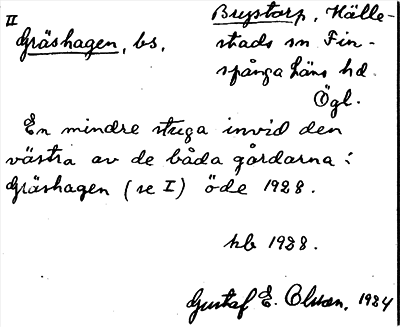 II
Gräshagen, bs.
Brystorp, Hälle-
stads sn Fin-
spånga läns hd.
Ögl.
En mindre stuga invid den
västra av de båda gårdarna i
Gräshagen (se I) öde 1928.
hb 1928.
Gustaf E. Olsson, 1934